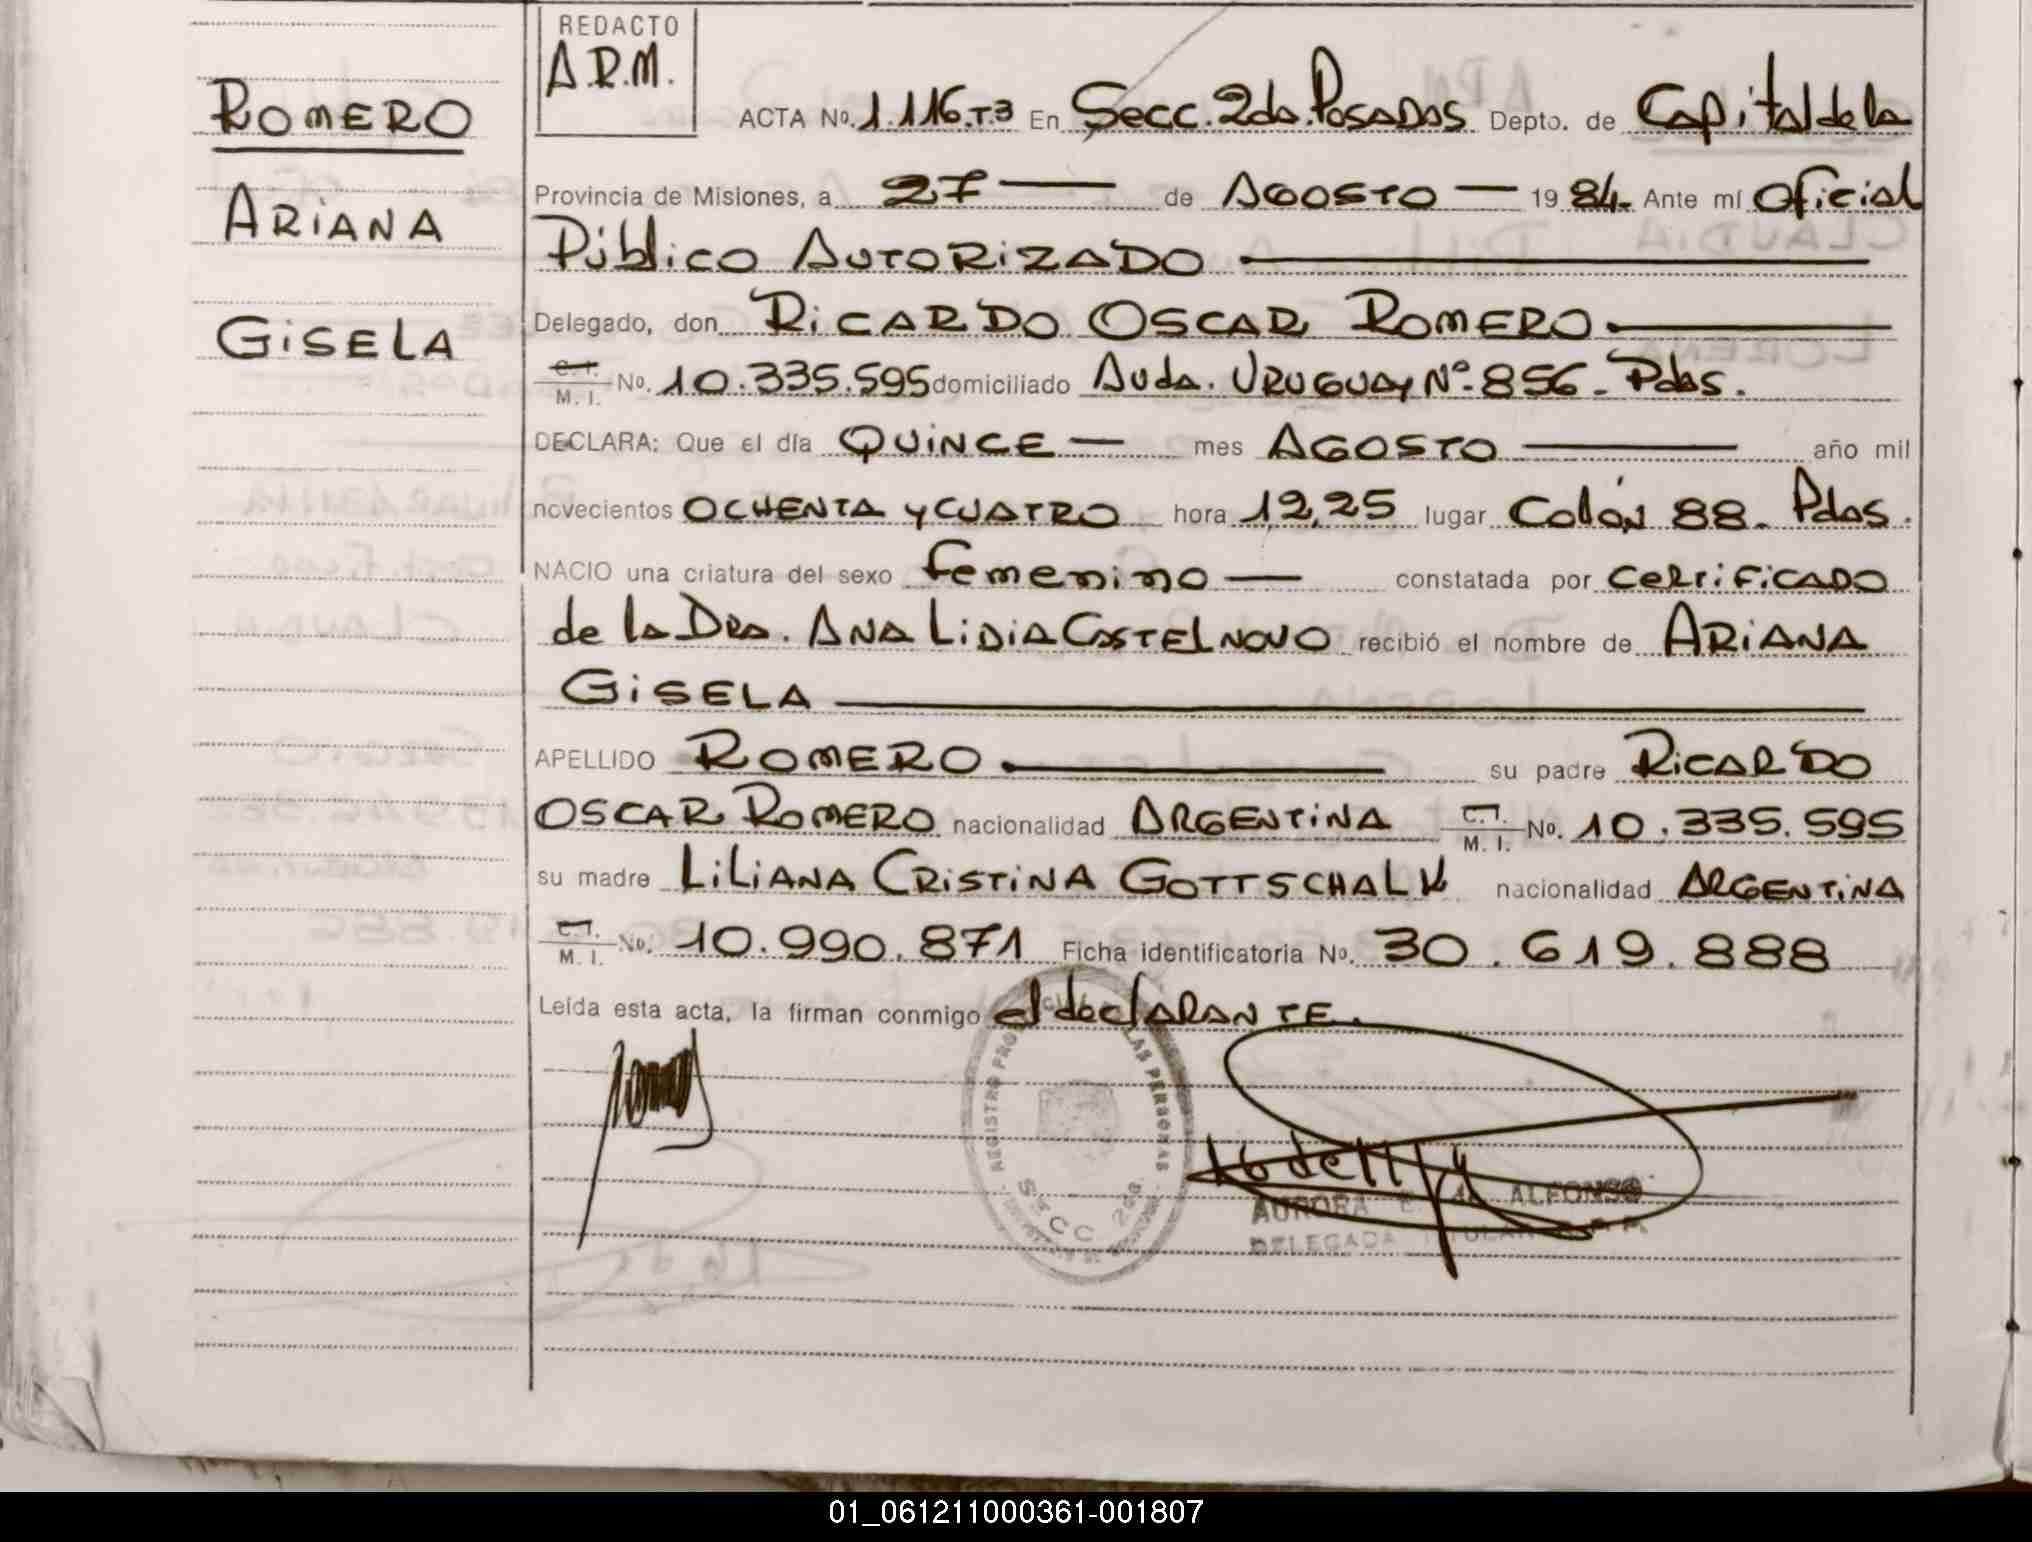 REDACTO
A.R.M.
ROMERO
ARIANA
GISELA
ACTA No. 1.116.T.3 En Secc. 2da. POSADAS Depto. de Capital de la
Provincia de Misiones, a 27 — de AGOSTO — 19 84. Ante mí Oficial
Público AUTORIZADO
Delegado, don RICARDO OSCAR ROMERO
C.I. M. I. No. 10.335.595 domiciliado Avda. URUGUAY Nº 856 - Pdas.
DECLARA: Que el día QUINCE — mes AGOSTO — año mil
novecientos OCHENTA Y CUATRO hora 12,25 lugar Colón 88. Pdas.
NACIO una criatura del sexo femenino — constatada por CERTIFICADO
de la DRA. ANA LIDIA CASTELNOVO recibió el nombre de ARIANA
GISELA
APELLIDO ROMERO — su padre RICARDO
OSCAR ROMERO nacionalidad ARGENTINA C.I. M. I. No. 10.335.595
su madre LILIANA CRISTINA GOTTSCHALK nacionalidad ARGENTINA
C.I. M. I. No. 10.990.871 Ficha identificatoria No. 30.619.888
Leída esta acta, la firman conmigo el declarante.
REGISTRO LAS PERSONAS
SECC 2da.
AURORA ALFONSO
DELEGADA TITULAR
01_061211000361-001807